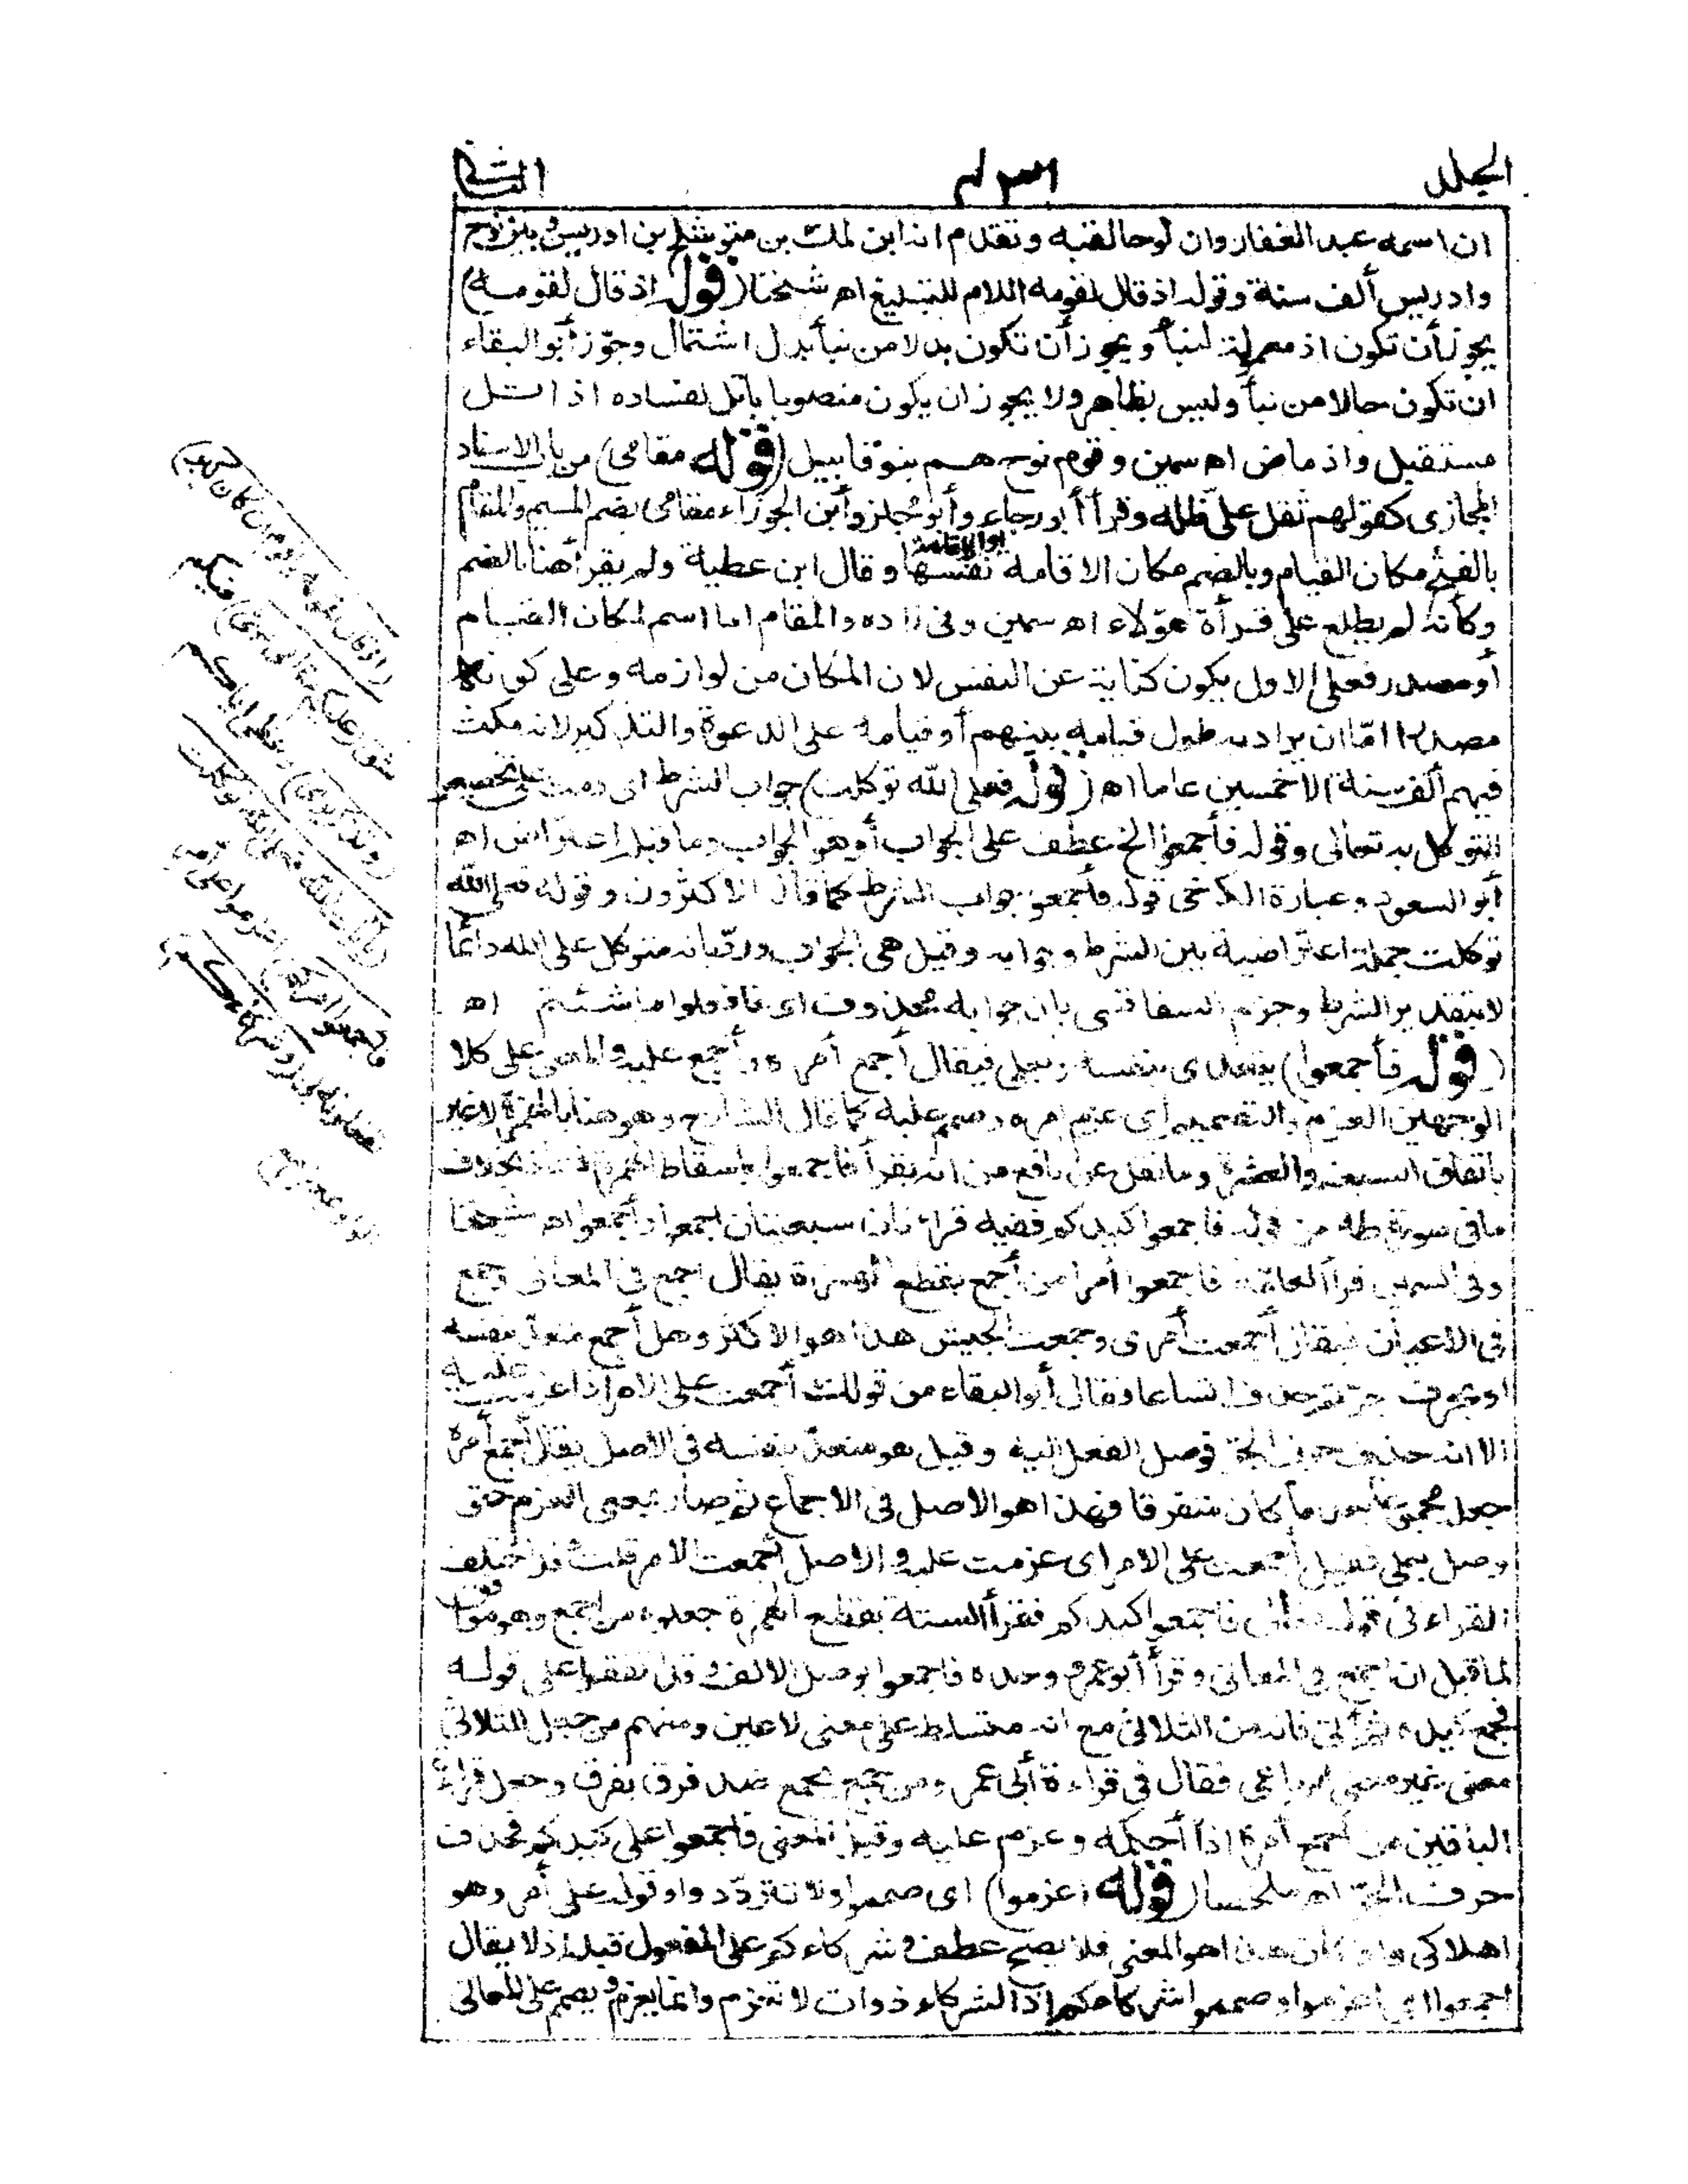 الجلد الثاني
ان اسمه عبد الغفار وان نوحا لقبه وتقدم انه ابن لمك بن متوشلخ بن ادريس وبين نوح
وادريس ألف سنة وقوله اذ قال لقومه اللام للتبليغ اه شيخنا (قوله اذ قال لقومه)
يجوز أن تكون اذ معمولة لنبأ ويجوز أن تكون بدلا من نبأ بدل اشتمال وجوّز أبو البقاء
ان تكون حالا من نبأ وليس بظاهر ولا يجوز ان يكون منصوبا باتل لفساده اذ اتل
مستقبل واذ ماض اه سمين وقوم نوح هم بنو قابيل (قوله مقامى) من باب الاسناد
المجازى كقولهم ثقل علىّ ظله وقرأ أبو رجاء وأبو مجلز وأبن الجوزاء مقامى بضم الميم والمقام
بالفتح مكان القيام وبالضم مكان الاقامة أو الاقامة نفسها وقال ابن عطية ولم يقرأ هنا بالضم
وكأنه لم يطلع على قرأة هؤلاء اه سمين وفى زاده والمقام اما اسم لمكان القيام
أو مصدر فعلى الاول يكون كناية عن النفس لان المكان من لوازمه وعلى كونه
مصدرا امّا ان يراد به طول قيامه بينهم أو قيامه على الدعوة والتذكير لانه مكث
فيهم ألف سنة الا خمسين عاما اه (قوله فعلى الله توكلت) جواب الشرط اى دمت على تخصيص
التوكل به تعالى وقوله فأجمعوا الخ عطف على الجواب أو هو الجواب وما قبله اعتراض اه
أبو السعود وعبارة الكرخى قوله فأجمعوا جواب الشرط كما قال الاكثرون وقوله فعلى الله
توكلت جملة اعتراضية بين الشرط وجوابه وقيل هى الجواب وردّ بانه متوكل على الله دائما
لا بتقدير الشرط وجزم السفاقسى بان جوابه محذوف اى فافعلوا ما شئتم اه
(قوله فأجمعوا) يتعدى بنفسه وبعلى فيقال أجمع أمره وأجمع عليه والمعنى على كلا
الوجهين العزم والتصميم أى عزم امره وصمم عليه كما قال الشارح وهو هنا بالهمزة لا غير
باتفاق السبعة والعشرة وما نقل عن نافع من انه يقرأ فاجمعوا باسقاط الهمزة فشاذ بخلاف
ما فى سورة طه من قوله فاجمعوا كيدكم ففيه قراءتان سبعيتان اجمعوا وأجمعوا اه شيخنا
وفى السمين قرأ العامّة فاجمعوا أمرا من أجمع بقطع الهمزة يقال اجمع فى المعانى وجمع
فى الاعيان فيقال أجمعت أمرى وجمعت الجيش هذا هو الاكثر وهل أجمع متعدّ بنفسه
او بحرف جرّ ثم حذف اتساعا فقال أبو البقاء من قولك أجمعت على الامر اذا عزمت عليه
الا انه حذف حرف الجرّ فوصل الفعل اليه وقيل هو متعدّ بنفسه فى الاصل يقال أجمع أمره
جعله مجموعا بعد ما كان متفرقا فهذا هو الاصل فى الاجماع ثم صار بمعنى العزم حتى
وصل بعلى فقيل أجمعت على الامر اى عزمت عليه والاصل أجمعت الامر قلت وقد اختلف
القراء فى قوله تعالى فاجمعوا كيدكم فقرأ الستة بقطع الهمزة جعلوه من اجمع وهو موافق
لما قبل ان اجمع فى المعانى وقرأ أبو عمرو وحده فاجمعوا بوصل الالف وقد اتفقوا على قوله
فجمع كيده ثم أتى فانه من الثلاثى مع انه متسلط على معنى لا عين ومنهم من جعل للثلاثى
معنى غير معنى الرباعى فقال فى قراءة أبى عمرو من جمع يجمع ضد فرق يفرق وجعل قراءة
الباقين من أجمع أمره اذا أحكمه وعزم عليه وقيل المعنى فاجمعوا على كيدكم فحذف
حرف الجرّ اه ملخصا (قوله اعزموا) اى صمموا ولا تتردّدوا وقوله على أمر وهو
اهلاكى ولو كان هذا هو المعنى فلا يصح عطف وشركاءكم على المفعول قبله اذ لا يقال
اجمعوا اى اعزموا وصمموا شركاءكم اذ الشركاء ذوات لا تعزم وانما يعزم ويصمم على المعانى